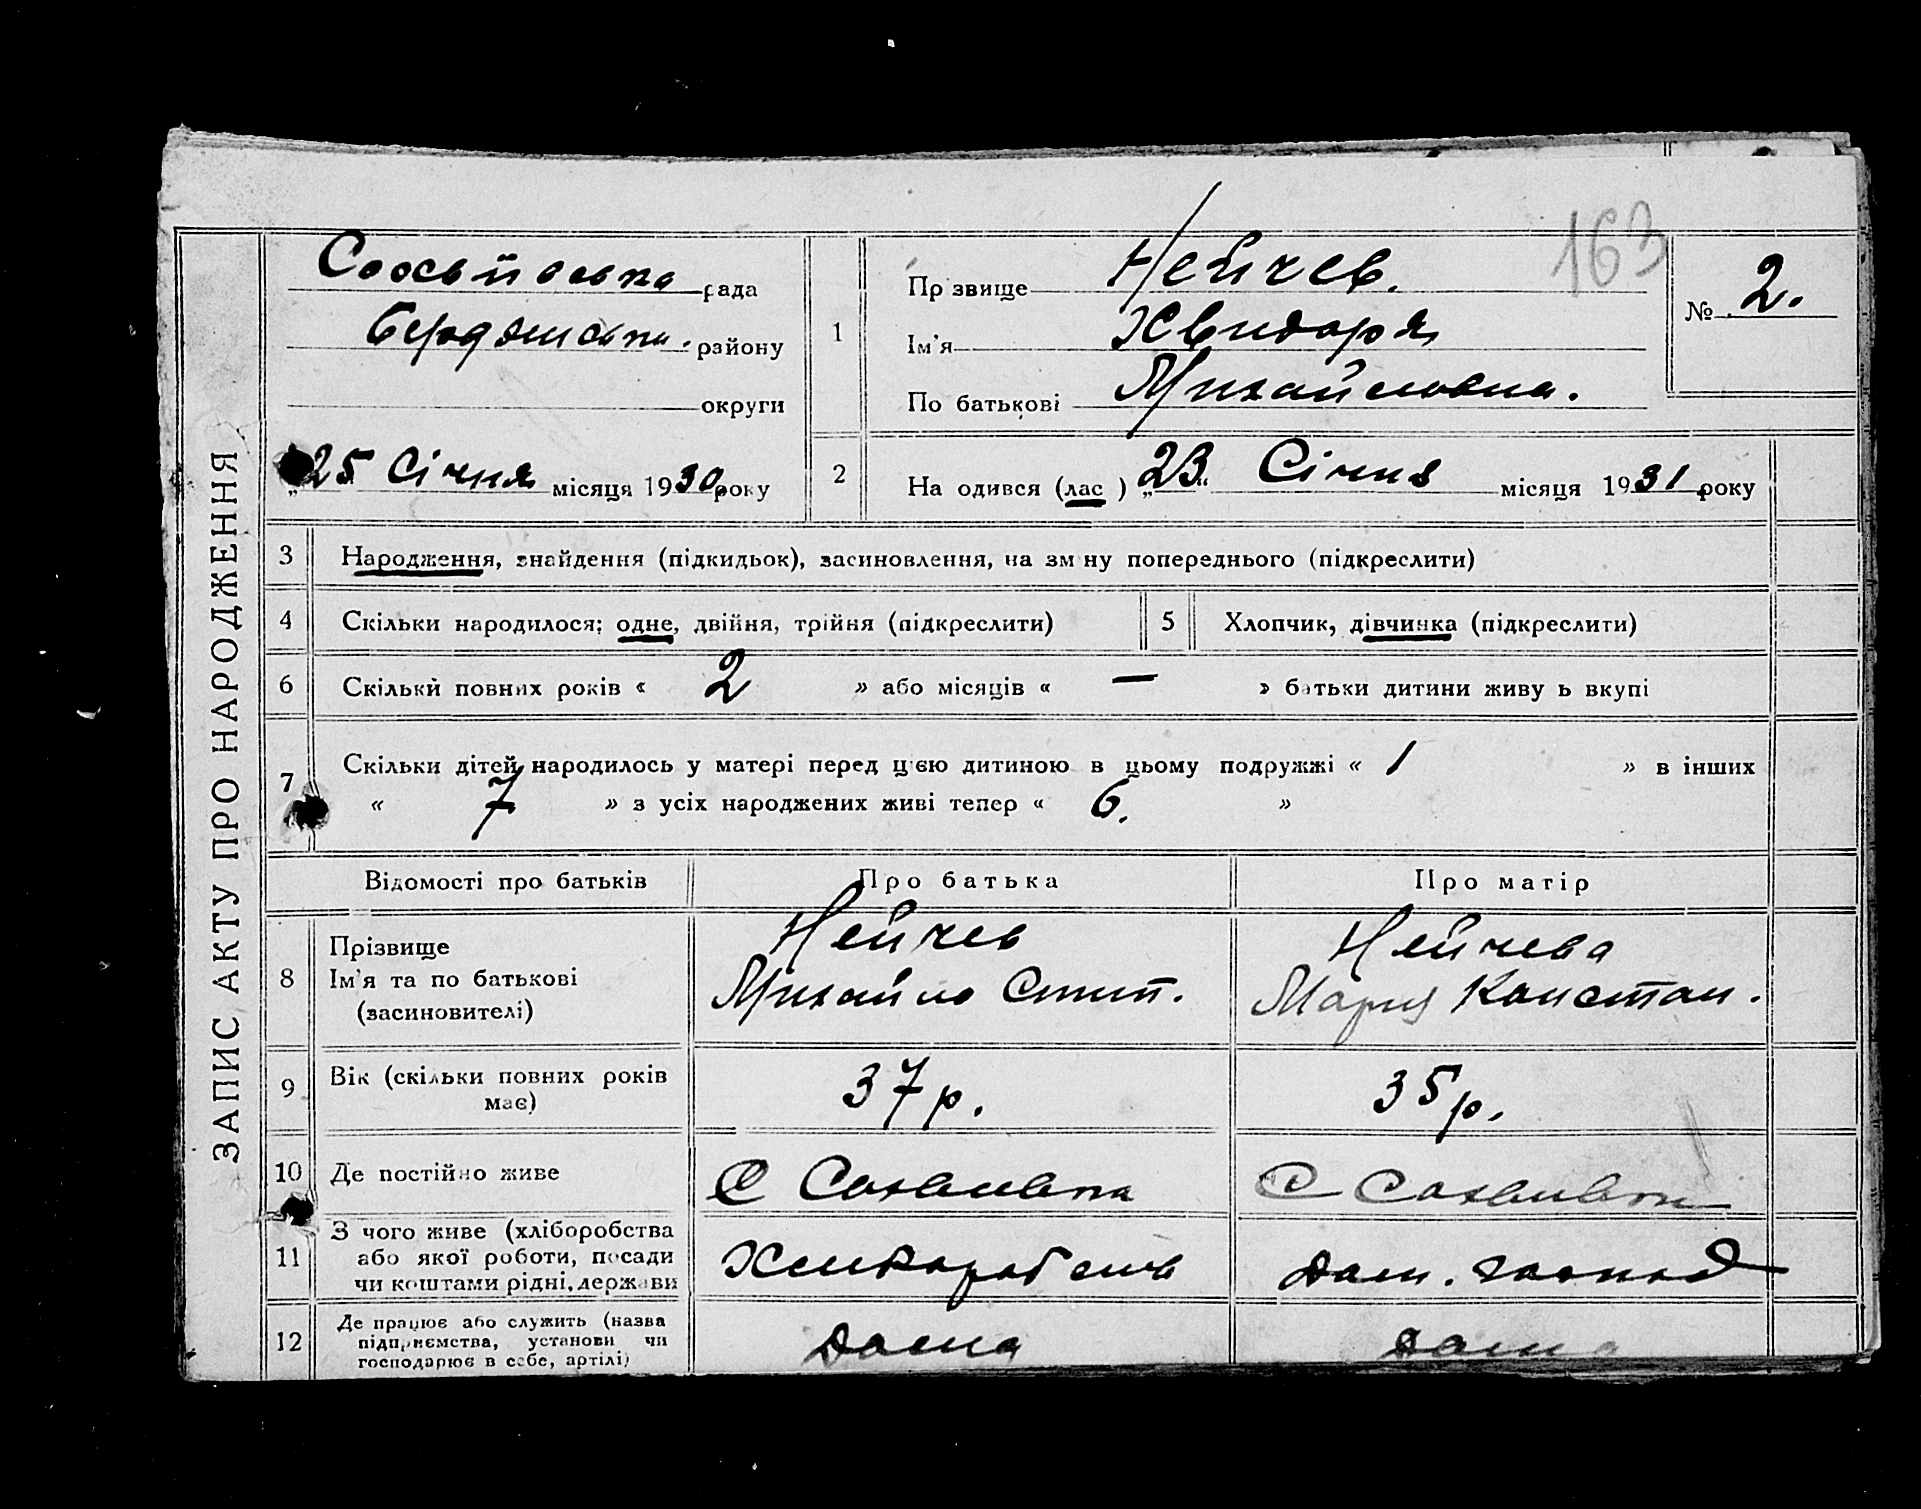 163
рада
Бердянська. району
округи
25 Січня місяця 1930 року
ЗАПИС АКТУ ПРО НАРОДЖЕННЯ
1
Прізвище Нейчев.
Ім'я Хвидоря
По батькові Михайловна.
№ 2.
2 На одився (лас) „23“ Січня місяця 1931 року
3 Народження, знайдення (підкидьок), засиновлення, на зм ну попереднього (підкреслити)
4 Скільки народилося; одне, двійня, трійня (підкреслити)
5 Хлопчик, дівчинка (підкреслити)
6 Скільки повних років « 2 » або місяців « — » батьки дитини живу ь вкупі
7 Скільки дітей народилось у матері перед цією дитиною в цьому подружжі « 1 » в інших
« 7 » з усіх народжених живі тепер « 6. »
Відомості про батьків Про батька Про матір
8 Прізвище Нейчев Нейчева
Ім'я та по батькові Михайло Стип. Мария Констан.
(засиновителі)
9 Вік (скільки повних років має) 37 р. 35 р.
10 Де постійно живе С С
11 З чого живе (хліборобства
або якої роботи, посади
чи коштами рідні, держави
Дом. господ
12 Де працює або служить (назва
підприємства, установи чи
господарює в себе, артілі)
Дома Дома